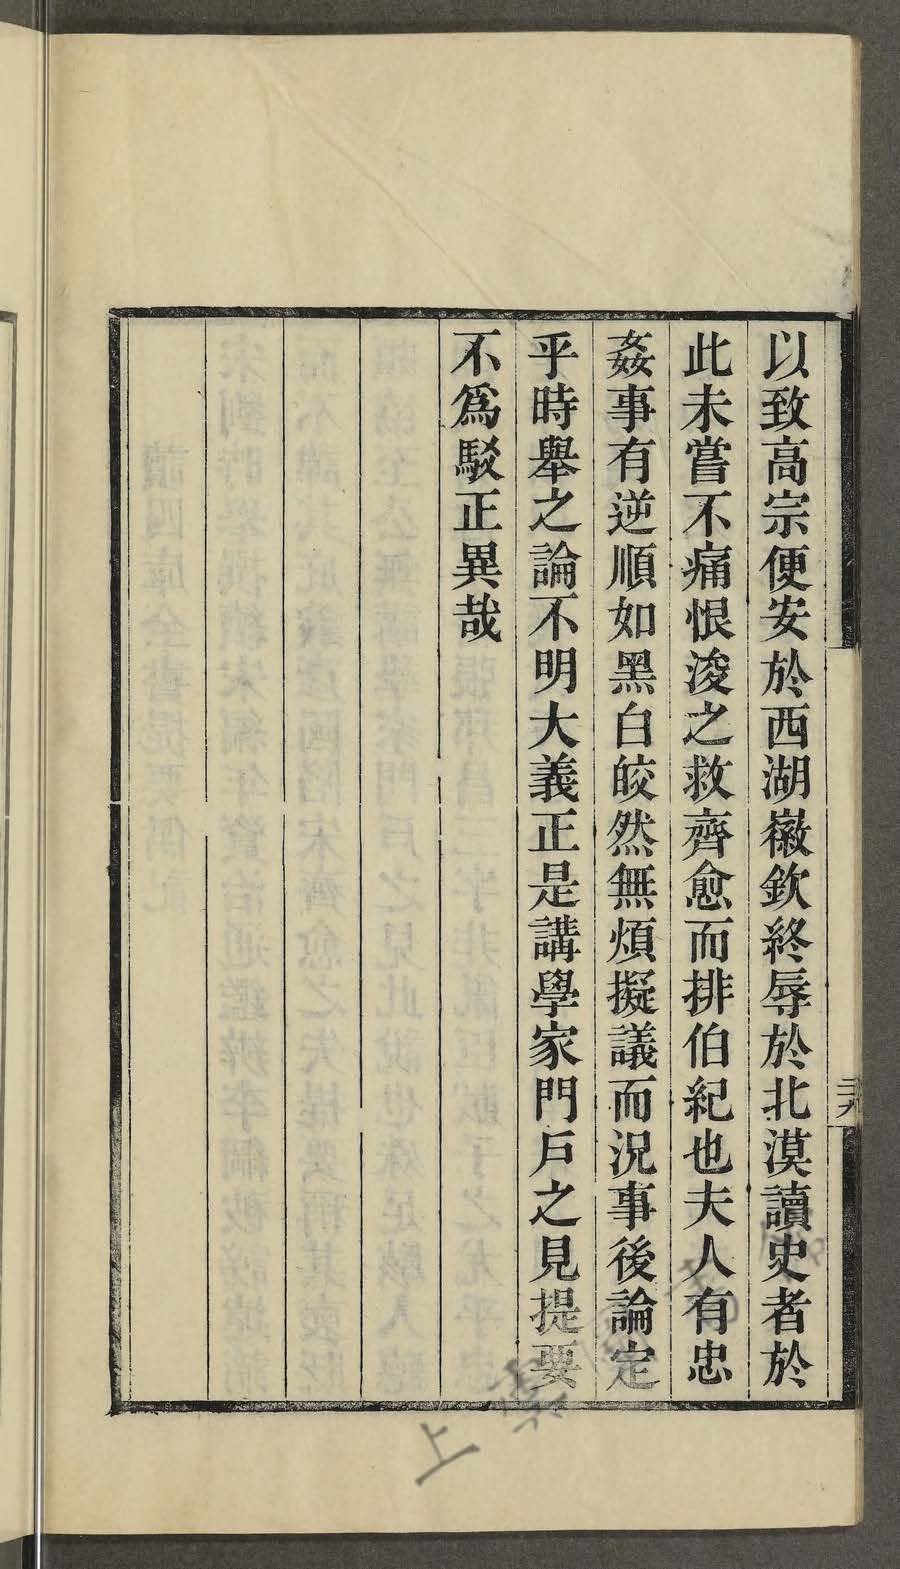 以致高宗便安於西湖徽欽終辱於北漠讀史者於
此未嘗不痛恨浚之救齊愈而排伯紀也夫人有忠
姦事有逆順如黑白皎然無煩擬議而況事後論定
乎時舉之論不明大義正是講學家門戶之見提要
不爲駁正異哉